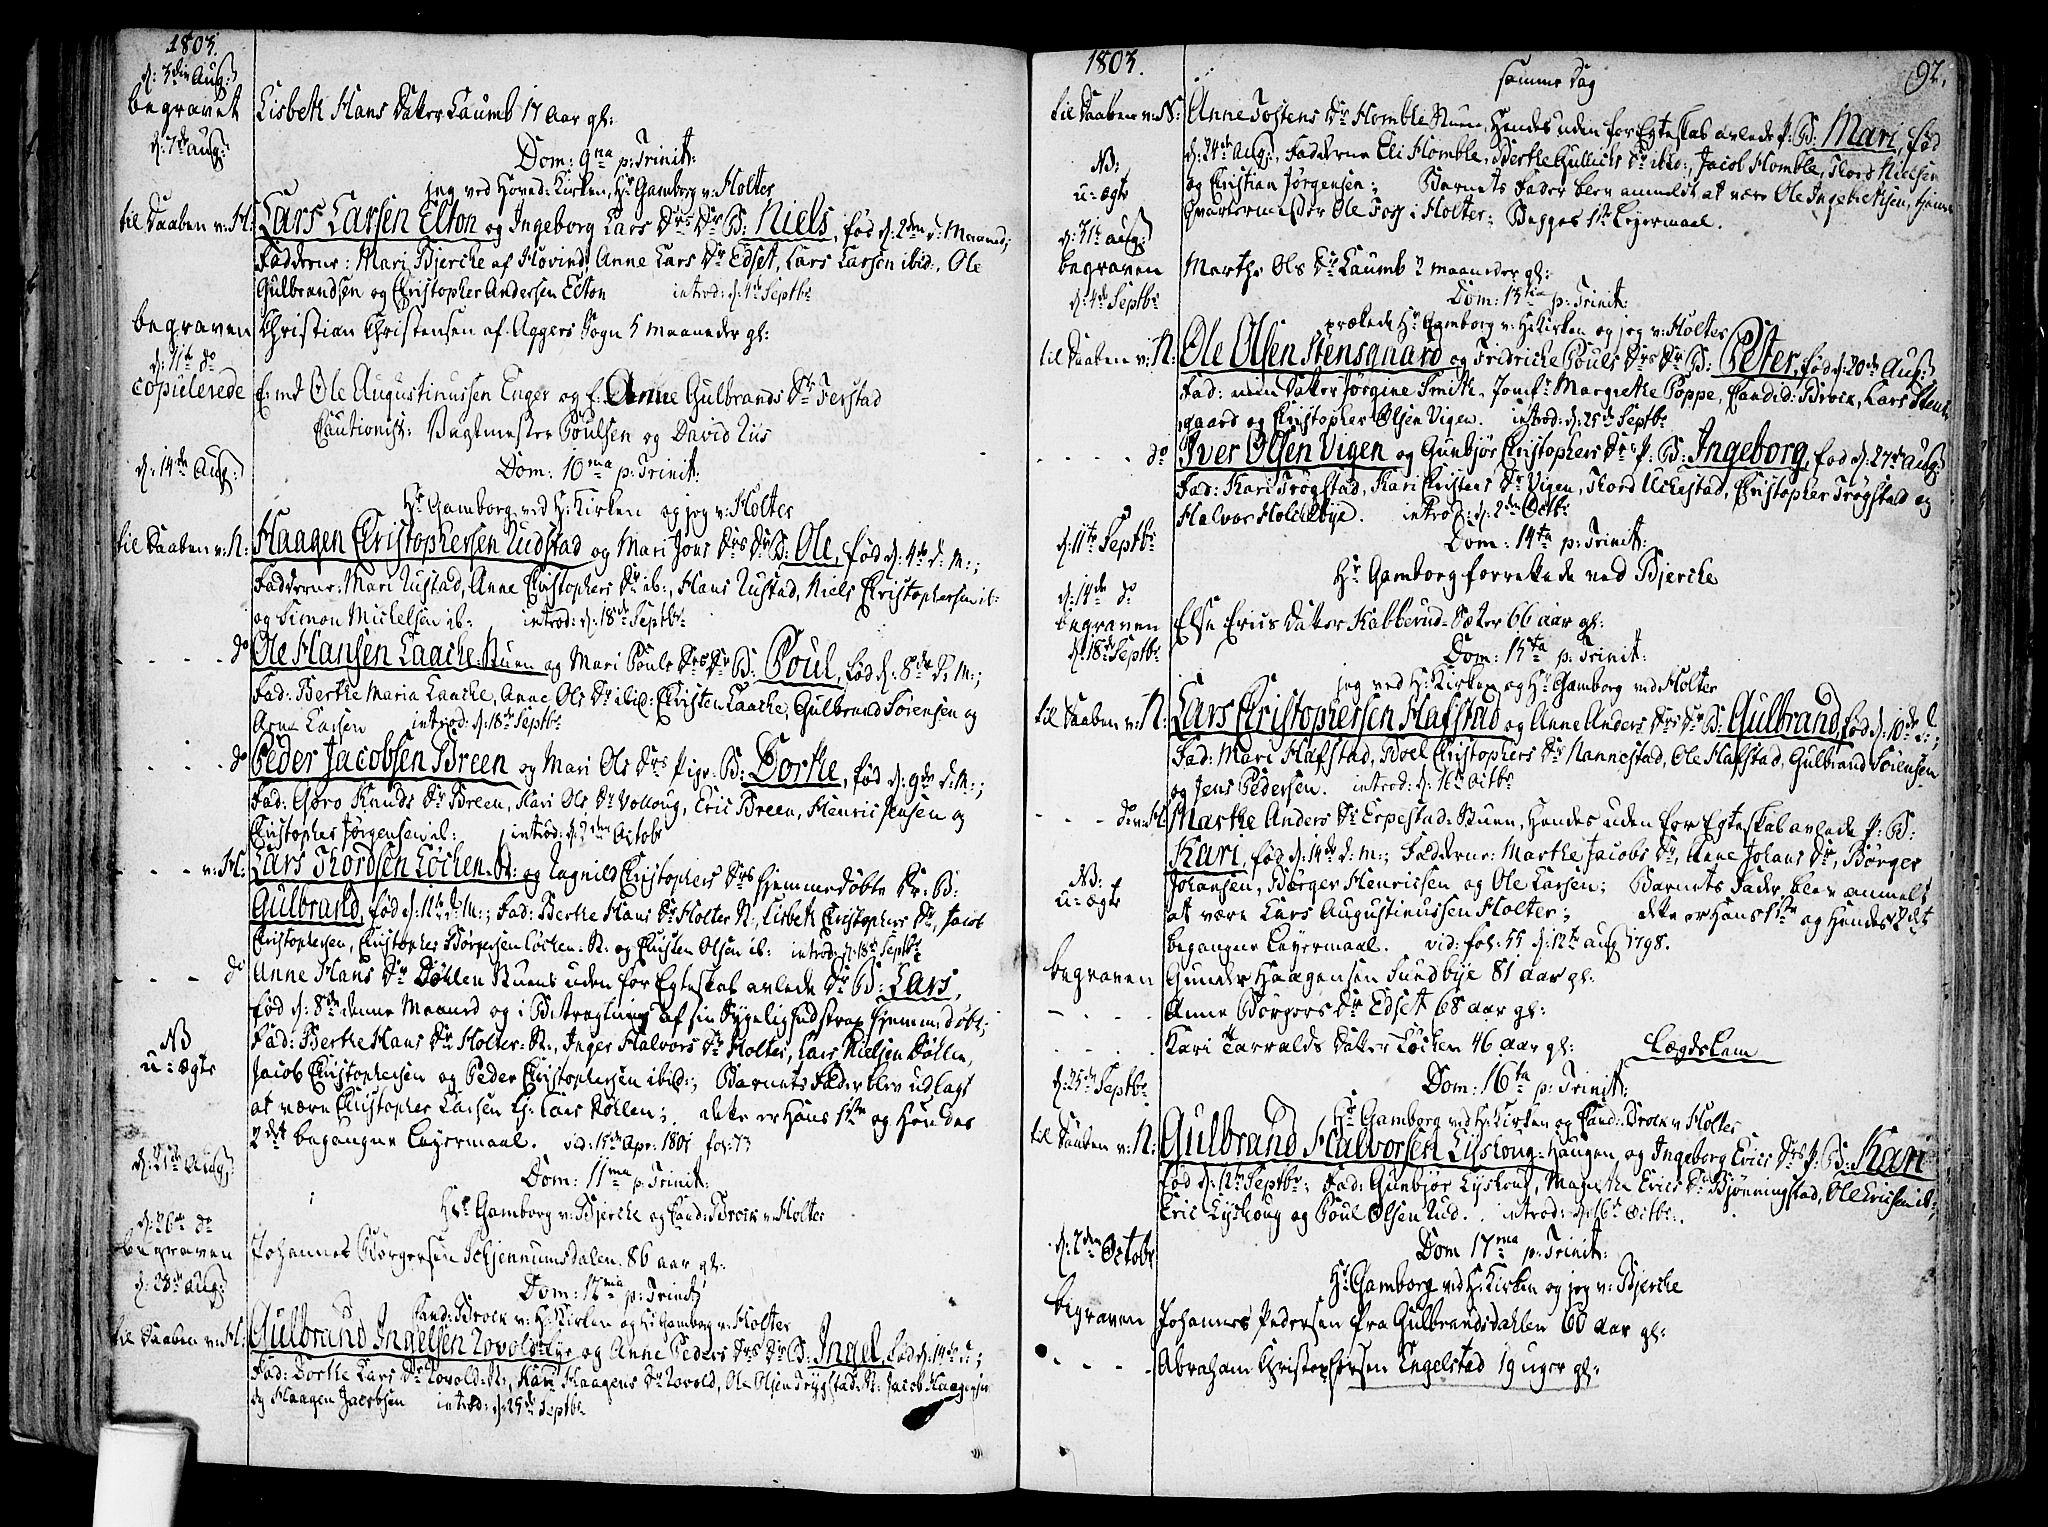 1803.
d: 3die Aug:
begravet Lisbeth Hans Datter Laumb 17 Aar gl:
d: 7de Aug:
Dom: 9na p: Trinit:
jeg ved Hoved-Kirken, Hr Gamborg v: Holter
til Daaben v: H: Lars Larsen Elton og Ingeborg Lars Drs Dr B: Niels, fød d: 2den d: Maaned;
Fadderne: Mari Bjerche af Hovind, Anne Lars Dr Edset, Lars Larsen ibid:, Ole
Gulbrandsen og Christopher Andersen Elton introd: d: 4de Septbr
begraven Christian Christensen af Aggers Sogn 5 maaneder gl:
d: 11te do
copulerede E: md Ole Augustinussen Enger og f: Anne Gulbrands Dr Ferstad
Cautionist: Vagtmester Poulsen og David Riis
d: 14de Aug:
Dom: 10ma p: Trinit:
Hr Gamborg ved H: Kirken og jeg v: Holter
til Daaben v: N: Haagen Christophersen Rudstad og Mari Jons Drs Dr B: Ole, fød d: 4de d: M:;
Fadderne: Mari Rustad, Anne Christophers Dr ib:, Hans Rustad, Niels Christophersen ib:
og Simon Michelsen ib: introd: d: 18de Septbr
- - - - do Ole Hansen Laache-Stuen og Mari Pouls Drs Dr B: Poul, fød d: 8de d: M:;
Fad: Berthe Maria Laache, Anne Ols Dr ibid: Christen Laache, Gulbrand Sørensen og
Arne Larsen introd: d: 18de Septbr
- - - - do Peder Jacobsen Breen og Mari Ols Drs Pige-B: Dorthe, fød d: 9de d: M:;
Fad: Goro Knuds Dr Breen, Kari Ols Dr Volloug, Eric Breen, Henric Jensen og
Christopher Jørgensen ib: introd: d: 2den Octobr
- - - v: H: Lars Thordsen Løchen-St: og Ragnild Christophers Drs hjemmedøbte Dr. B:
Gulbrand, fød d: 11te d: M:; Fad: Berthe Hans Dr Holter-St:, Lisbeth Christophers Dr, Jacob
Christophersen, Christopher Børgersen Løchen-St: og Christen Olsen ib: introd: d: 18de Septbr
- - - do Anne Hans Dr Døhlen Stuens uden for Egteskab avlede Dr B: Lars,
NB
u-ægte
fød d: 8de denne Maaned og i Betragtning af sin Sygelighed strax hjemmedøbt;
Fad: Berthe Hans Dr Holter-St:, Inger Halvors Dr Holter, Lars Nielsen Døllen,
Jacob Christophersen og Peder Christophersen ibid:; Barnets Fader blev udlagt
at være Christopher Larsen Døhlen; dette er Hans 1ste og Hendes
2det begangne Leyermaal. vid: 15de Apr: 1801 fol: 73
d: 21de Aug:
Dom: 11ma p: Trinit:
Hr Gamborg v: Bjerche og Cand: Brock v: Holter
d: 26de do
begraven Johannes Børgersen Schjennumsdalen 86 aar gl:
d: 28de Aug:
Dom: 12ma p: Trinit:
Cand: Brock v: H: Kirken og Hr Gamborg v: Holter
til Daaben v: H: Gulbrand Ingelsen Rovold-Eye og Anne Peders Drs Dr B: Ingel, fød d: 14de d:;
Fad: Dorthe Lars Dr Rovold-St:, Kari Haagens Dr Rovold, Ole Olsen Trygstad-St: Jacob Haagensen
og Haagen Jacobsen introd: d: 25de Septbr
1803. samme Dag 92.
til Daaben v: N: Anne Tostens Dr Homble Stuen, Hendes uden for Egteskab avlede P: B: Mari, fød
NB:
u-ægte
d: 24de Aug:, Fadderne Eli Homble, Berthe Gullichs Dr ibid:, Jacob Homble, Thord Nielsen
og Christian Jørgensen; Barnets Fader blev anmeldt at være Ole Ingebretsen, tjener
Qvartermester Ole Foss i Holter; Begges 1ste Leyermaal.
d: 31te Aug:
begraven Marthe Ols Dr Laumb 2 maaneder gl:
d: 4de Septbr
Dom: 13tia p: Trinit:
prækede Hr Gamborg v: H: Kirken og jeg v: Holter
til Daaben v: N: Ole Olsen Stensgaard og Fridriche Pouls Drs Dr B: Peter, fød d: 20de Aug:
Fad: min Datter Jørgine Smith, Jomfr Margrethe Poppe, Candid: Brock, Lars Stens-
gaard og Christopher Olsen Vigen. introd: d: 25de Septbr
- - - - do Iver Olsen Vigen og Gunbjør Christophers Drs P: B: Ingeborg, fød d: 27de Aug:
Fad: Kari Trøgstad, Kari Christens Dr Vigen, Thord Uchestad, Christopher Trøgstad og
Halvor Holchbye. introd: d: 2den Octbr
d: 11te Septbr
Dom: 14ta p: Trinit:
Hr Gamborg forrettede ved Bjerche
d: 14de do
begraven Else Erics Datter Kabberud-Sæter 66 aar gl:
d: 18de Septbr
Dom: 15ta p: Trinit:
jeg ved H: Kirken og Hr Gamborg ved Holter
til Daaben v: N: Lars Christophersen Hafstad og Anne Anders Drs Dr B: Gulbrand, fød d: 10de d:;
Fad: Mari Hafstad, Boel Christophers Dr Nannestad, Ole Hafstad, Gulbrand Sørensen
og Jens Pedersen. introd: d: 16de Octbr
- - - do v: H Marthe Anders Dr Erpestad-Stuen, Hendes uden for Egteskab avlede P: B:
NB:
u-ægte
Kari, fød d: 14de d: M:; Fadderne: Marthe Jacobs Dr, Anne Johans Dr, Børger
Johansen, Børger Henricsen og Ole Larsen; Barnets Fader blev anmeldt
at være Lars Augustinussen Holter; dette er Hans 1ste og Hendes 2det
begangne Leyermaal. vid: fol: 55 d: 12te Aug 1798.
begraven Gunder Haagensen Sundbye 81 aar gl:
- - - - Anne Børgers Dr Edset 68 aar gl:
- - - - Kari Tarralds Datter Løchen 46 aar gl: Lægdslem
d: 25de Septbr
Dom: 16ta p: Trinit:
Hr Gamborg ved H: Kirken og Cand: Brock v: Holter
til Daaben v: N: Gulbrand Halvorsen Lyshoug-Haugen og Ingeborg Erics Drs P: B: Kari
fød d: 12te Septbr; Fad: Gunbjør Lyshoug, Marthe Erics Dr Bjønningstad, Ole Ericsen ib:,
Eric Lyshoug og Poul Olsen Rud. introd: d: 16de Octbr.
d: 2den Octobr
Dom 17ma p: Trinit:
Hr Gamborg ved H: Kirken og jeg v: Bjerche
begraven Johannes Pedersen fra Gulbrandsdahlen 60 aar gl:
- - - - Abraham Christophersen Engelstad 19 uger gl: